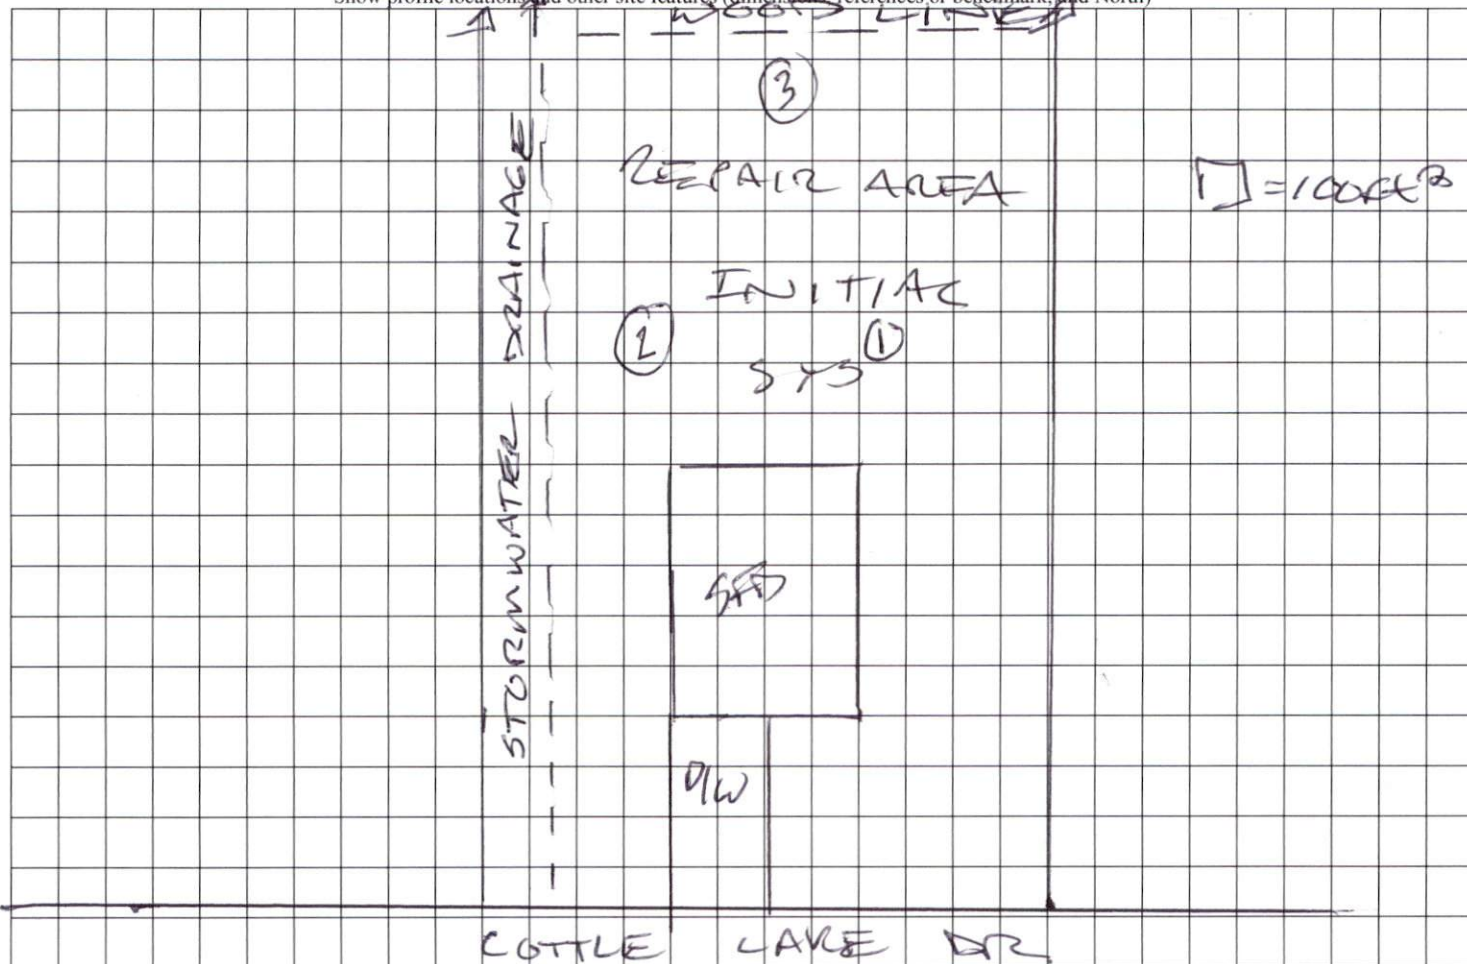 Show profile locations and other site features (dimensions, references or benchmark, and North)
WOOD LINE
3
REPAIR AREA
□ = 100ft²
INITIAL
2
1
SYS
STORMWATER DRAINAGE
SFD
D/W
COTTLE LAKE DR